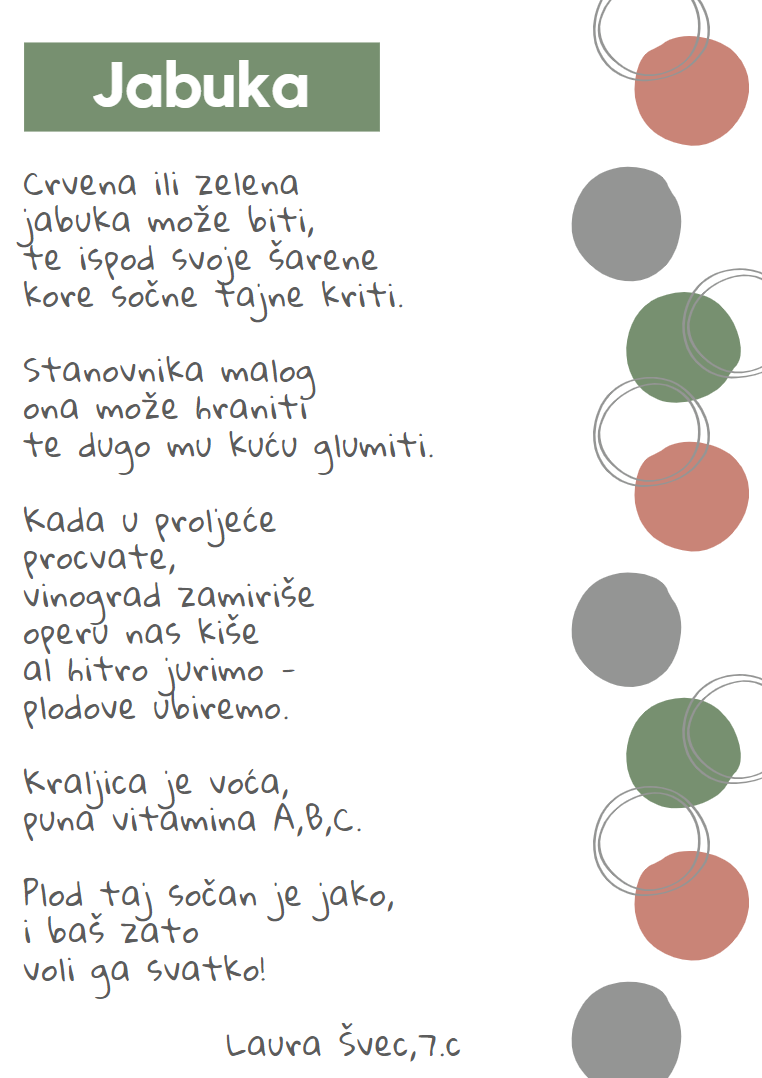 Jabuka
Crvena ili zelena
jabuka može biti,
te ispod svoje šarene
kore sočne tajne kriti.
Stanovnika malog
ona može hraniti
te dugo mu kuću glumiti.
Kada u proljeće
procvate,
vinograd zamiriše
operu nas kiše
al hitro jurimo -
plodove ubiremo.
Kraljica je voća,
puna vitamina A,B,C.
Plod taj sočan je jako,
i baš zato
voli ga svatko!
Laura Švec,7.c